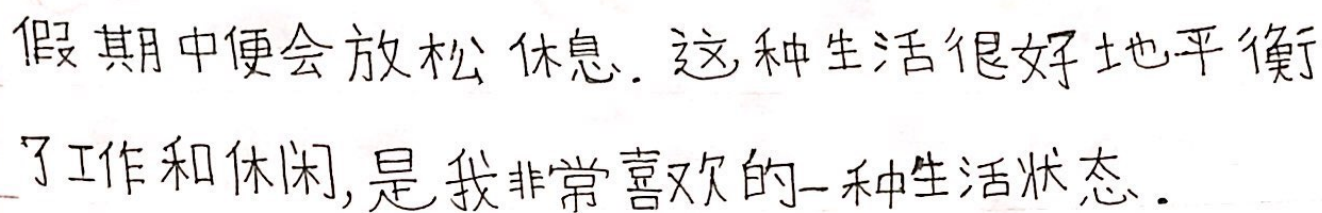 假期中便会放松休息. 这种生活很好地平衡
了工作和休闲,是我非常喜欢的一种生活状态.